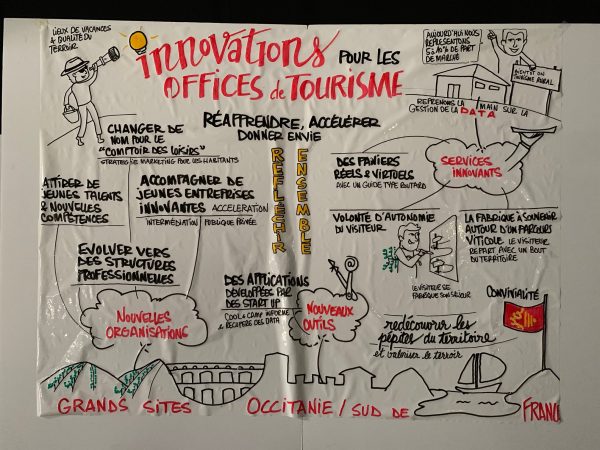 LIEUX DE VACANCES
& QUALITÉ DU
TERROIR
innovations
POUR LES
OFFICES de TOURISME
RÉAPPRENDRE, ACCÉLÉRER
DONNER ENVIE
REFLECHIR
ENSEMBLE
AUJOURD'HUI NOUS
REPRESENTONS
5 à 10% DE PART
DE MARCHÉ
BIENTÔT ON
TOURISME RURAL
REPRENONS LA MAIN SUR LA
GESTION DE LA DATA
CHANGER DE
NOM POUR LE
"COMPTOIR DES LOISIRS"
STRATEGIE MARKETING POUR LES HABITANTS
ATTIRER DE
JEUNES TALENTS
& NOUVELLES
COMPÉTENCES
ACCOMPAGNER DE
JEUNES ENTREPRISES
INNOVANTES ACCELERATION
INTERMÉDIATION / PUBLIQUE PRIVÉE
DES PANIERS
RÉELS & VIRTUELS
AVEC UN GUIDE TYPE ROUTARD
SERVICES
INNOVANTS
VOLONTÉ D'AUTONOMIE
DU VISITEUR
LE VISITEUR SE
FABRIQUE SON SÉJOUR
LA FABRIQUE À SOUVENIR
AUTOUR D'UN PARCOURS
VITICOLE LE VISITEUR
REPART AVEC UN BOUT
DU TERRITOIRE
EVOLUER VERS
DES STRUCTURES
PROFESSIONNELLES
NOUVELLES
ORGANISATIONS
DES APPLICATIONS
DÉVELOPPÉES PAR
DES START UP
COOL & CAMP INFORME
& RECUPERE DES DATA
NOUVEAUX
OUTILS
CONVIVIALITÉ
redécouvrir les
pépites du territoire
et valoriser le terroir
GRANDS SITES OCCITANIE / SUD DE FRANC